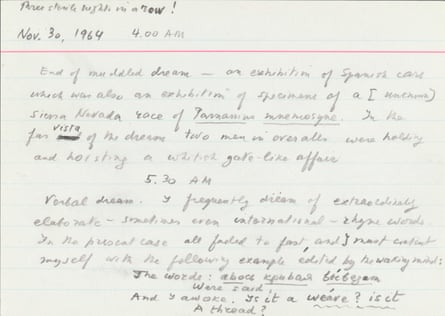 Three sterile nights in a row!
Nov. 30, 1964 4.00 AM
End of muddled dream — an exhibition of Spanish
which was also an exhibition of specimens of a [unknown]
Sierra Nevada race of Parnassius mnemosyne. In the
far vista of the dream two men in overalls were holding
and hoisting a whitish gate-like affair
5.30 AM
Verbal dream. I frequently dream of extraordinarily
elaborate — sometimes even international — rhyme words.
In the present case all faded too fast and I must content
myself with the following example edited by the waking mind:
The words: авось кривая вывезет
Were said
And I awoke. Is it a weave? is it
A thread?